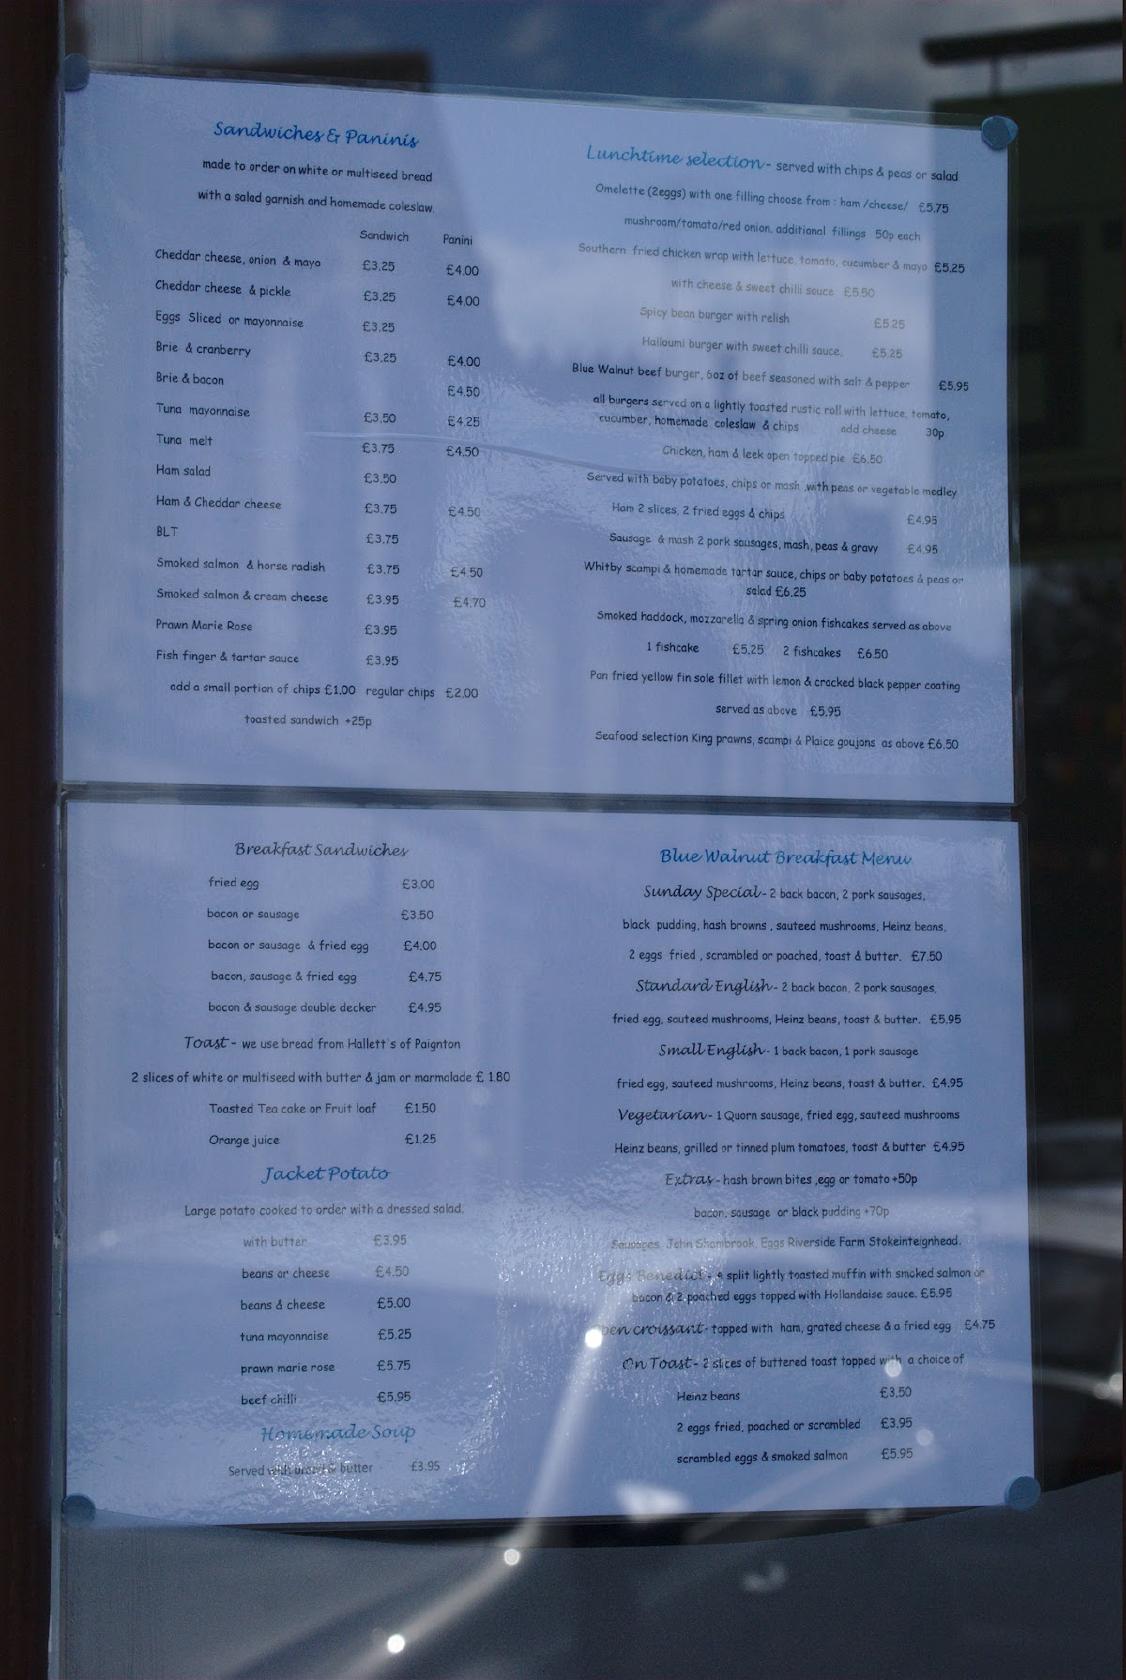 Sandwiches & Paninis
made to order on white or multiseed bread
with a salad garnish and homemade coleslaw.
Sandwich Panini
Cheddar cheese, onion & mayo £3.25 £4.00
Cheddar cheese & pickle £3.25 £4.00
Eggs Sliced or mayonnaise £3.25
Brie & cranberry £3.25 £4.00
Brie & bacon £4.50
Tuna mayonnaise £3.50 £4.25
Tuna melt £3.75 £4.50
Ham salad £3.50
Ham & Cheddar cheese £3.75 £4.50
BLT £3.75
Smoked salmon & horse radish £3.75 £4.50
Smoked salmon & cream cheese £3.95 £4.70
Prawn Marie Rose £3.95
Fish finger & tartar sauce £3.95
add a small portion of chips £1.00 regular chips £2.00
toasted sandwich +25p
Lunchtime selection - served with chips & peas or salad
Omelette (2eggs) with one filling choose from : ham /cheese/ £5.75
mushroom/tomato/red onion, additional fillings 50p each
Southern fried chicken wrap with lettuce, tomato, cucumber & mayo £5.25
with cheese & sweet chilli sauce £5.50
Spicy bean burger with relish £5.25
Halloumi burger with sweet chilli sauce. £5.25
Blue Walnut beef burger, 6oz of beef seasoned with salt & pepper £5.95
all burgers served on a lightly toasted rustic roll with lettuce, tomato,
cucumber, homemade coleslaw & chips add cheese 30p
Chicken, ham & leek open topped pie £6.50
Served with baby potatoes, chips or mash ,with peas or vegetable medley
Ham 2 slices, 2 fried eggs & chips £4.95
Sausage & mash 2 pork sausages, mash, peas & gravy £4.95
Whitby scampi & homemade tartar sauce, chips or baby potatoes & peas or
salad £6.25
Smoked haddock, mozzarella & spring onion fishcakes served as above
1 fishcake £5.25 2 fishcakes £6.50
Pan fried yellow fin sole fillet with lemon & cracked black pepper coating
served as above £5.95
Seafood selection King prawns, scampi & Plaice goujons as above £6.50
Breakfast Sandwiches
fried egg £3.00
bacon or sausage £3.50
bacon or sausage & fried egg £4.00
bacon, sausage & fried egg £4.75
bacon & sausage double decker £4.95
Toast - we use bread from Hallett's of Paignton
2 slices of white or multiseed with butter & jam or marmalade £ 1.80
Toasted Tea cake or Fruit loaf £1.50
Orange juice £1.25
Jacket Potato
Large potato cooked to order with a dressed salad.
with butter £3.95
beans or cheese £4.50
beans & cheese £5.00
tuna mayonnaise £5.25
prawn marie rose £5.75
beef chilli £5.95
Homemade Soup
Served with bread & butter £3.95
Blue Walnut Breakfast Menu
Sunday Special - 2 back bacon, 2 pork sausages,
black pudding, hash browns , sauteed mushrooms, Heinz beans,
2 eggs fried , scrambled or poached, toast & butter. £7.50
Standard English - 2 back bacon, 2 pork sausages,
fried egg, sauteed mushrooms, Heinz beans, toast & butter. £5.95
Small English - 1 back bacon, 1 pork sausage
fried egg, sauteed mushrooms, Heinz beans, toast & butter. £4.95
Vegetarian - 1 Quorn sausage, fried egg, sauteed mushrooms
Heinz beans, grilled or tinned plum tomatoes, toast & butter £4.95
Extras - hash brown bites ,egg or tomato +50p
bacon, sausage or black pudding +70p
Sausages, John Shambrook, Eggs Riverside Farm Stokeinteignhead.
Eggs Benedict - a split lightly toasted muffin with smoked salmon or
bacon & 2 poached eggs topped with Hollandaise sauce. £5.95
croissant - topped with ham, grated cheese & a fried egg £4.75
On Toast - 2 slices of buttered toast topped with a choice of
Heinz beans £3.50
2 eggs fried, poached or scrambled £3.95
scrambled eggs & smoked salmon £5.95